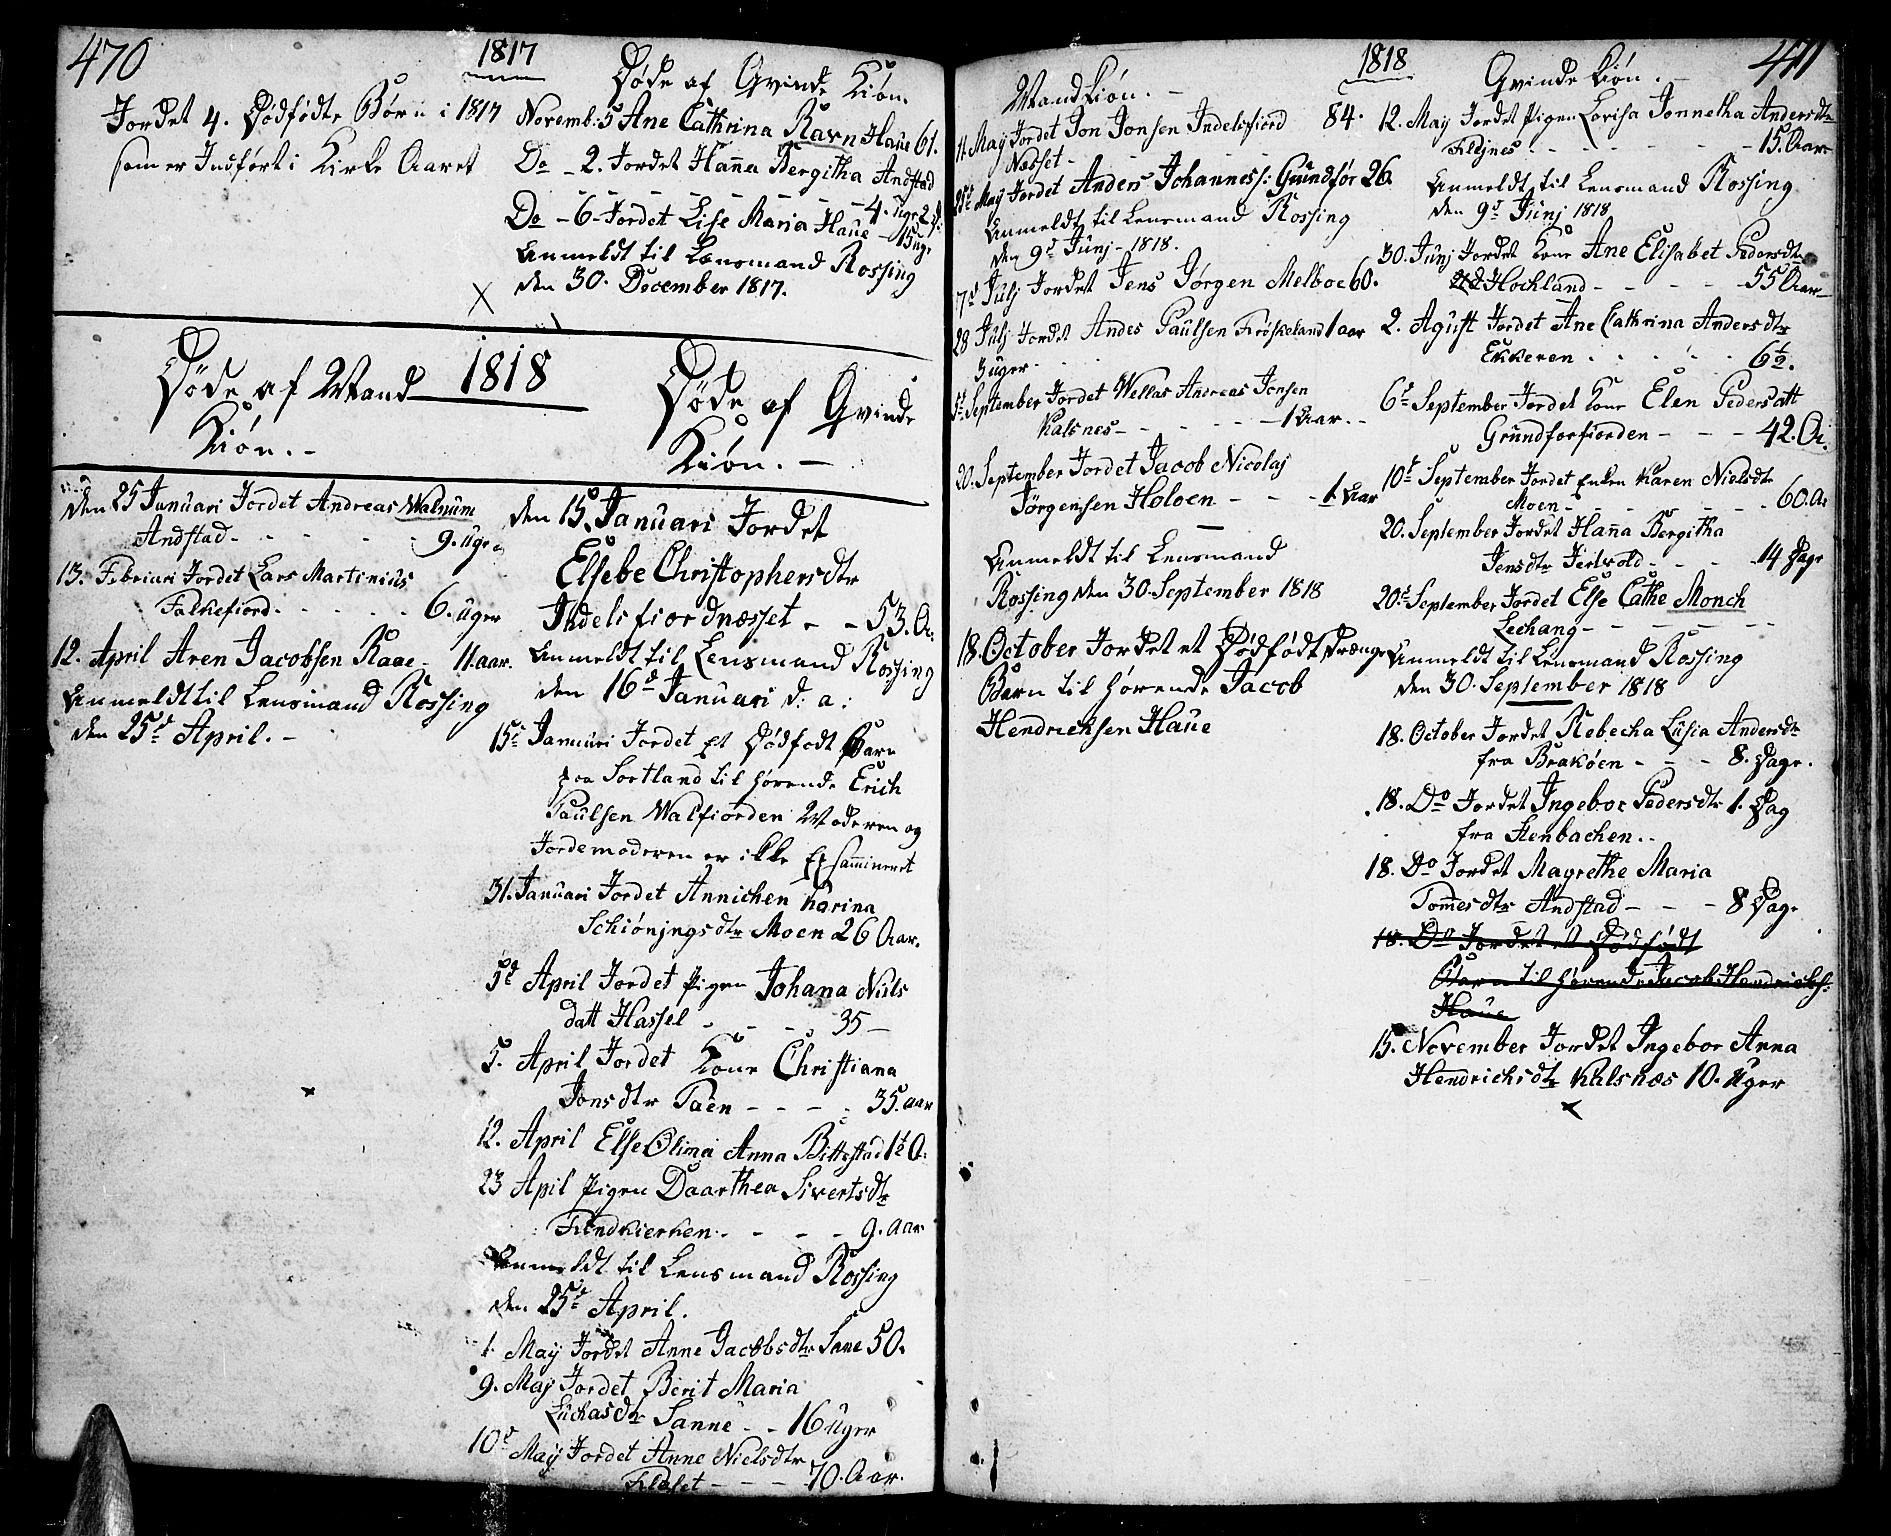 470
1817
Jordet 4. Dødfødte Børn i 1817
som er Indført i Kirke Aaret
Døde af Qvinde Kiøn.
Novemb: 5 Ane Cathrina Ravn Haue 61.
Do - 2. Jordet Hanna Bergitha Andstad
- - - - - 4. Uger 2 d:
Do - 6 - Jordet Lise Maria Haue - 15 ug.
Anmeldt til Lænsmand Rossing
den 30. December 1817.
X
1818
Døde af Mand
Kiøn. -
den 25 Januari Jordet Andreas Walnum
Andstad - - - - 9. Uger
13. Februari Jordet Lars Martinius
Falkefiord - - - - 6. Uger
12. April Aren Jacobsen Raae - 11. aar.
Anmeldt til Lensmand Rossing
den 25d April. -
Døde af Qvinde
Kiøn. -
den 15. Januari Jordet
Elsebe Christophersdtr
Indelsfiordnæsset - - 53. A:
Anmeldt til Lensmand Rossing
den 16d Januari d: a:
15d Januari Jordet Et Dødfødt Barn
paa Sortland til hørende Erich
Paulsen Walfiorden Moderen og
Jordemoderen er ikke Exsamineret
31. Januari Jordet Annichen Karina
Schiønjngsdtr Moen 26 Aar.
5d April Jordet Pigen Johana Niels
datt Hassel - - - - 35 -
5. April Jordet Kone Christiana
Jonsdtr Taen - - - - 35. aar
12. April Else Olima Anna Bittestad 1½ A:
23 Apil Pigen Daarthea Sivertsdtr
Findkierken - - - - 9. Aar
Anmeldt til Lensmand Rossing
den 25d April.
1. May Jordet Anne Jacobsdtr Sane 50.
9. May Jordet Berit Maria
Luchasdtr Sanne - - 16 Uger
10d May Jordet Anne Nielsdtr
Flesset - - - 70. Aar.
471
1818
Mandkiøn. -
11. May Jordet Jon Jonsen Indelsfiord 84.
Nesset - - - - -
25d May Jordet Anders Johanness: Grundfør 26.
Anmeldt til Lensmand Rossing
den 9d Junj - 1818.
7d Julj Jordet Jens Jørgen Melboe 60.
28 Julj Jordet Andes Paulsen Frøskeland 1 aar
3 uger -
1d September Jordet Wellas Andreas Jonsen
Kalsnes - - - - - - 1 Aar. -
20. September Jordet Jacob Nicolaj
Jørgensen Holoen - - - 1 Aar
Anmeldt til Lensmand
Rossing den 30. September 1818
18. October Jordet et Dødfødt Drænge
Barn til hørende Jacob
Hendrichsen Haue
Qvinde Kiøn. -
12. May Jordet Pigen Lovisa Jonnetha Andersdtr
Fleines - - - - - - 15. Aar
Anmeldt til Lensmand Rossing
den 9d Junj 1818
30. Junj Jordet Kone Ane Elisabet Pedersdtr
Hochland - - - - 55 Aar
2. Agust Jordet Ane Cathrina Andersdtr
Ekkeren - - - - - 6½.
6d September Jordet Kone Elen Pedersdtt
Grundforfiorden - - - 42. A.
10d September Jordet Enken Karen Nielsdtr
Moen - - - - - - 60. A.
20. September Jordet Hanna Bergitha
Jensdtr Jerlvold - - - - 14 Dage
20d September Jordet Else Cathe Monch
Lechang - - - - - -
Anmeldt til Lensmand Rossing
den 30. September 1818
18. October Jordet Rebecha Lusia Andersdtr
fra Brakøen - - - 8. Dage.
18. Do Jordet Ingebor Pedersdtr 1. Dag
fra Stenbachen..
18. Do Jordet Magrethe Maria
Tomesdtr Andstad - - - 8 Dage
18. Do Jordet et Dødfødt
Barn til hørende Jacob Hendrichs:
Haue
15. November Jordet Ingebor Anna
Hendrichsdtr Kalsnæs 10. Uger
x